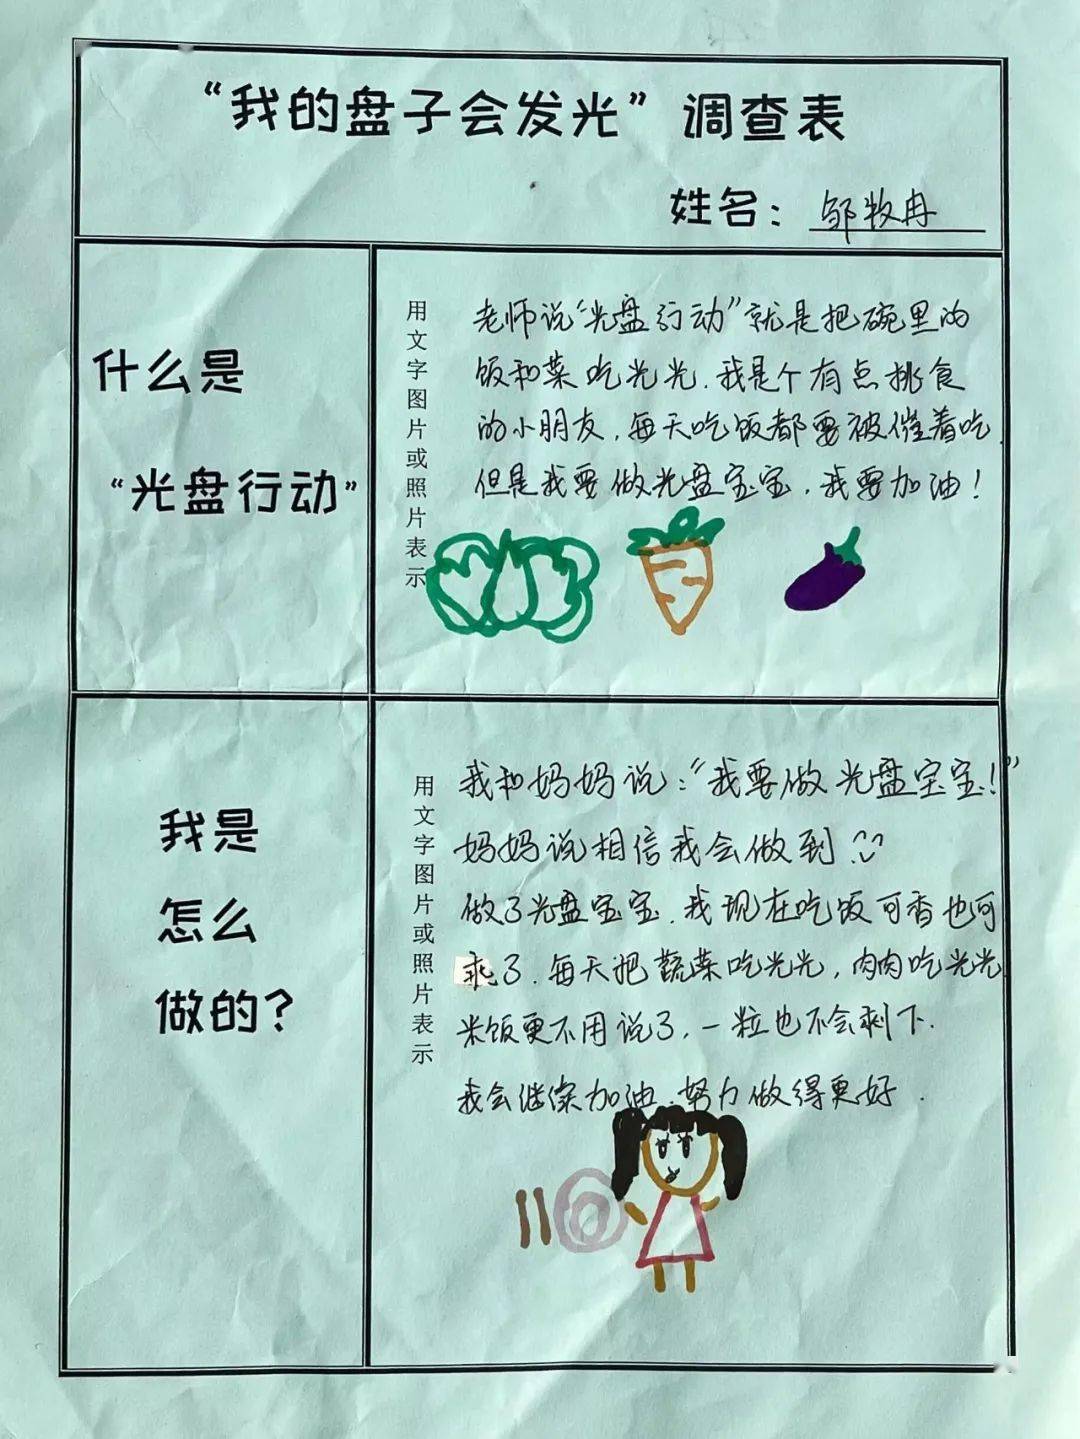 “我的盘子会发光”调查表
姓名：邹牧冉
什么是
“光盘行动”
用文字图片或照片表示
老师说“光盘行动”就是把碗里的
饭和菜吃光光.我是个有点挑食
的小朋友,每天吃饭都要被催着吃.
但是我要做光盘宝宝,我要加油！
我是
怎么
做的？
用文字图片或照片表示
我和妈妈说：“我要做光盘宝宝！”
妈妈说相信我会做到.
做了光盘宝宝.我现在吃饭可香也可
乖了.每天把蔬菜吃光光,肉肉吃光光.
米饭更不用说了,一粒也不会剩下.
我会继续加油,努力做得更好.